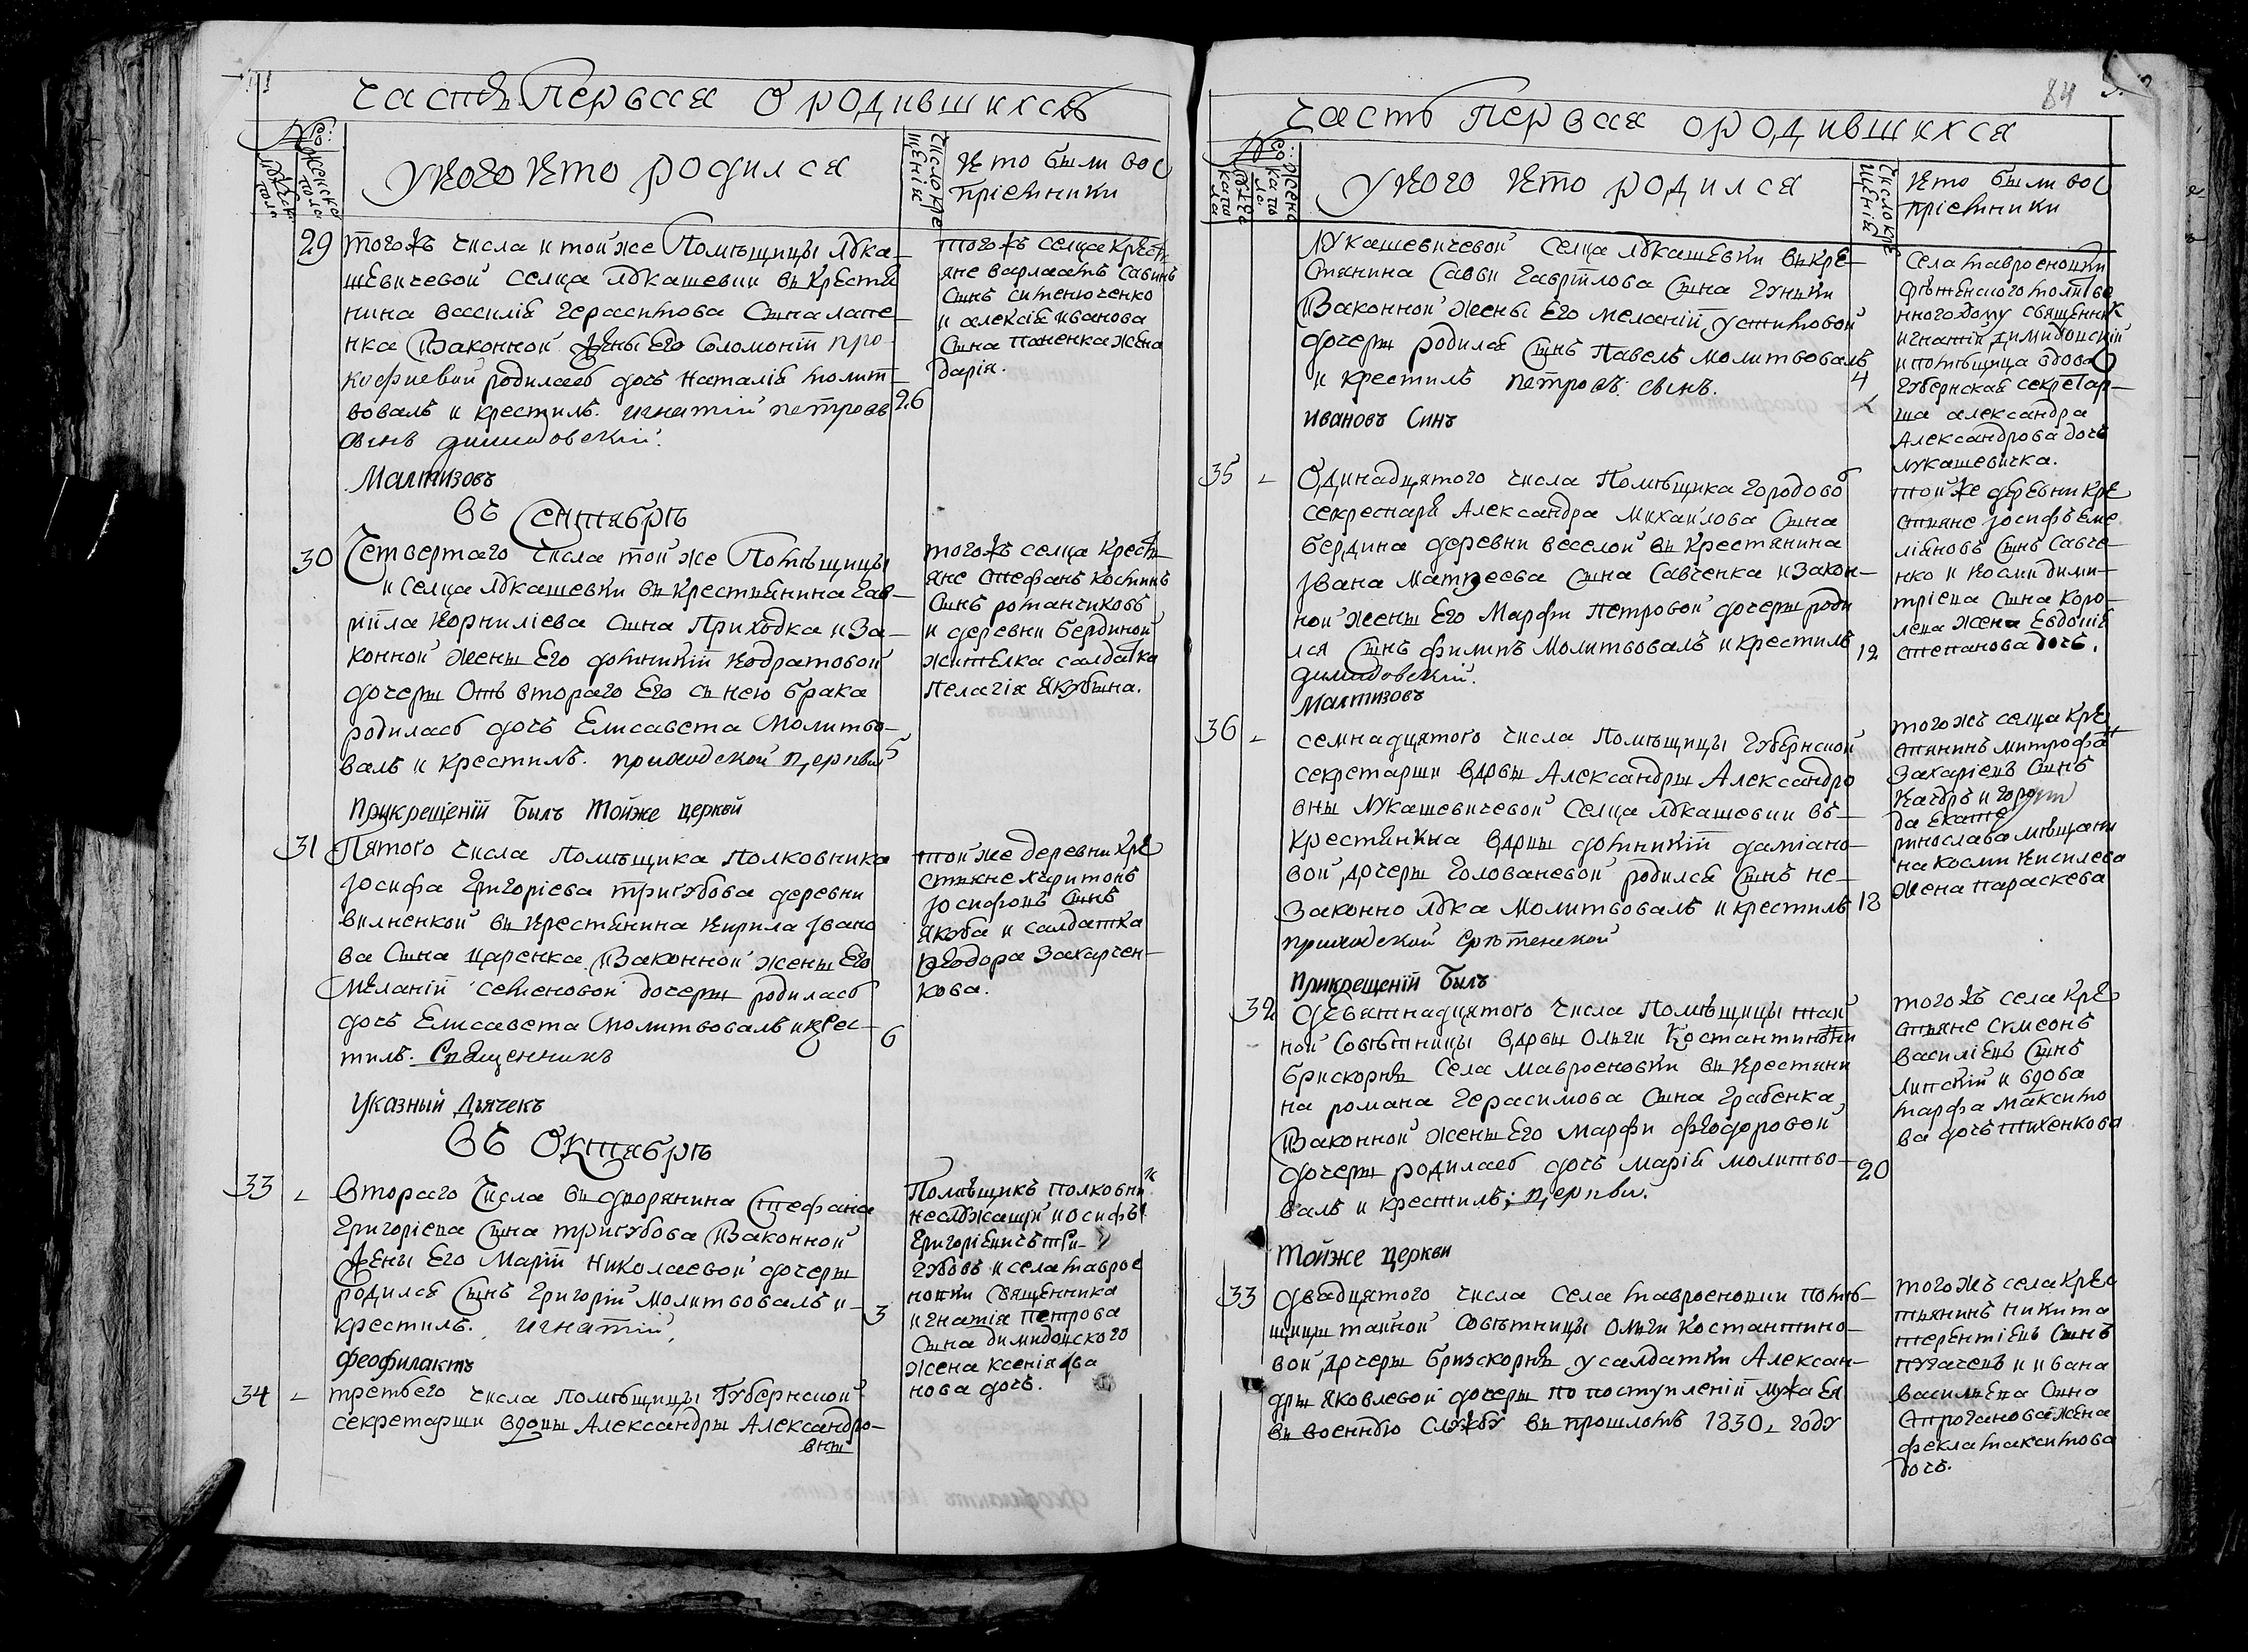 часть Первая О родившихся
№:
мужеска пола
женска пола
у кого кто родился
число крещенія
кто были вос
пріемники
29
того жъ числа и той же Помѣщицы Лука-
шевичевой селца Лукашевки въ крестя
нина василія Герасимова Сына лапе-
нка изаконной жены Его Соломоніи про-
кофиевой родилась дочь Наталія молит-
вовалъ и крестилъ. игнатій петровъ
сынъ димидовскій.
26
того жъ селца крестя
яне варлаамъ савинъ
Сынъ ситенюченко
и алексія иванова
Сына паненка жена
дарія.
въ Сентябрѣ
30
Четвертаго числа той же Помѣщицы
и селца Лукашевки въ крестиянина гав-
ріила Корниліева Сына Приходка и за-
конной жены Его домникіи кодратовой
дочеры Отъ втораго Его съ нею брака
родилась дочь Елисавета Молитво-
валъ и крестилъ. приходской церкви
5
того жъ селца крестя-
яне стефанъ косминъ
Сынъ романчиковъ
и деревни бердиной
жителка салдатка
пелагія якубына.
Прикрещеніи былъ Тойже церкви
31
Пятого числа помѣщика полковника
Іосифа Григоріева тригубова деревни
вилненкой въ крестянина кирила Івано
ва Сына царенка изаконной жены Его
Меланіи семеновой дочеры родилась
дочь Елисавета Молитвовалъ и крес-
тилъ. Священникъ
6
той же деревни кре
стияне харитонъ
Іосифовъ Сынъ
якуба и салдатка
феодора захарчен-
кова.
Указный Дьячекъ
въ Октябрѣ
33 -
втораго числа въ дворянина Стефана
Григоріева Сына тригубова изаконной
жены Его Маріи Николаевой дочеры
родился Сынъ Григорій Молитвовалъ и-
крестилъ. игнатій,
3
Помѣщикъ полковни
неслужащій иосифъ
Григоріевичъ три-
губовъ и села мавроe
новки священника
игнатія петрова
Сына димидовского
жена ксенія ива
нова дочь.
феофилактъ
34 -
третьего числа помѣщицы Губернской
секретарши вдовы Александры Александро-
вны
84
часть Первая о родившихся
№:
у кого кто родился
число крещенія
кто были вос
пріемники
Лукашевичевой Селца Лукашевки въ кре-
стянина Саввы Гавріилова Сына Гунки
изаконной жены Его меланіи устиновой
дочеры родился Сынъ Павелъ Молитвовалъ
и крестилъ петровъ: сынъ.
Ивановъ Синъ
4
Села мавроеновки
срѣтенского молитве
нного дому священник
игнатій димидовскій
и помѣщица вдова
Губернская секретар-
ша александра
Александрова дочь
лукашевичка.
35 -
Одинадцятого числа Помѣщика городово
секретаря Александра Михайлова Сына
бердина деревни веселой въ крестянина
Івана матвеева Сына Савченка изакон-
ной жены Его Марфи петровой дочеры роди
лся Сынъ филипъ Молитвовалъ и крестилъ
димидовскій.
12
той же деревни кре
стияне Іосифъ Еме
ліяновъ Сынъ савче-
нко и косми дими-
тріева Сына коро-
лева жена Евдокія
степанова дочь.
36 -
семнадцятого числа Помѣщицы Губернской
секретарши вдовы Александры Александро
вны Лукашевичевой Селца Лукашевки въ-
крестянина вдовы домникіи даміано-
вой дочеры Голованевой родился Сынъ не-
законно Лука Молитвовалъ и крестилъ
приходской срѣтенской
18
того жъ селца кре
стянинъ митрофа
захаріевъ Сынъ
и горо
да екате
ринослава мѣщани
на косми киселева
жена параскева
Прикрещеніи былъ
32
девятнадцятого числа Помѣщицы тай
ной совѣтницы вдовы Олги Костантиновни
брискорнъ Села мавроеновки въ крестяни
на романа Герасимова Сына Грабенка
изаконной жены Его марфи феодоровой
дочеры родилась дочь марія молитво-
валъ и крестилъ; церкви.
20
того жъ села кре
стьяне симеонъ
василіевъ Сынъ
липскій и вдова
марфа максимо
ва дочь тихенкова
Тойже церкви
33
двадцятого числа села мавроеновки помѣ-
щицы тайной совѣтницы Олги костантино-
вой дочеры брискорнъ у салдатки Алексан-
дры яковлевой дочеры по поступленіи мужа Ея
въ военную службу въ прошломъ 1830- году
того жъ села кре
тьянинъ никита
терентіевъ Сынъ
пугачевъ и ивана
василиева Сына
строганова жена
фекла максимова
дочь.